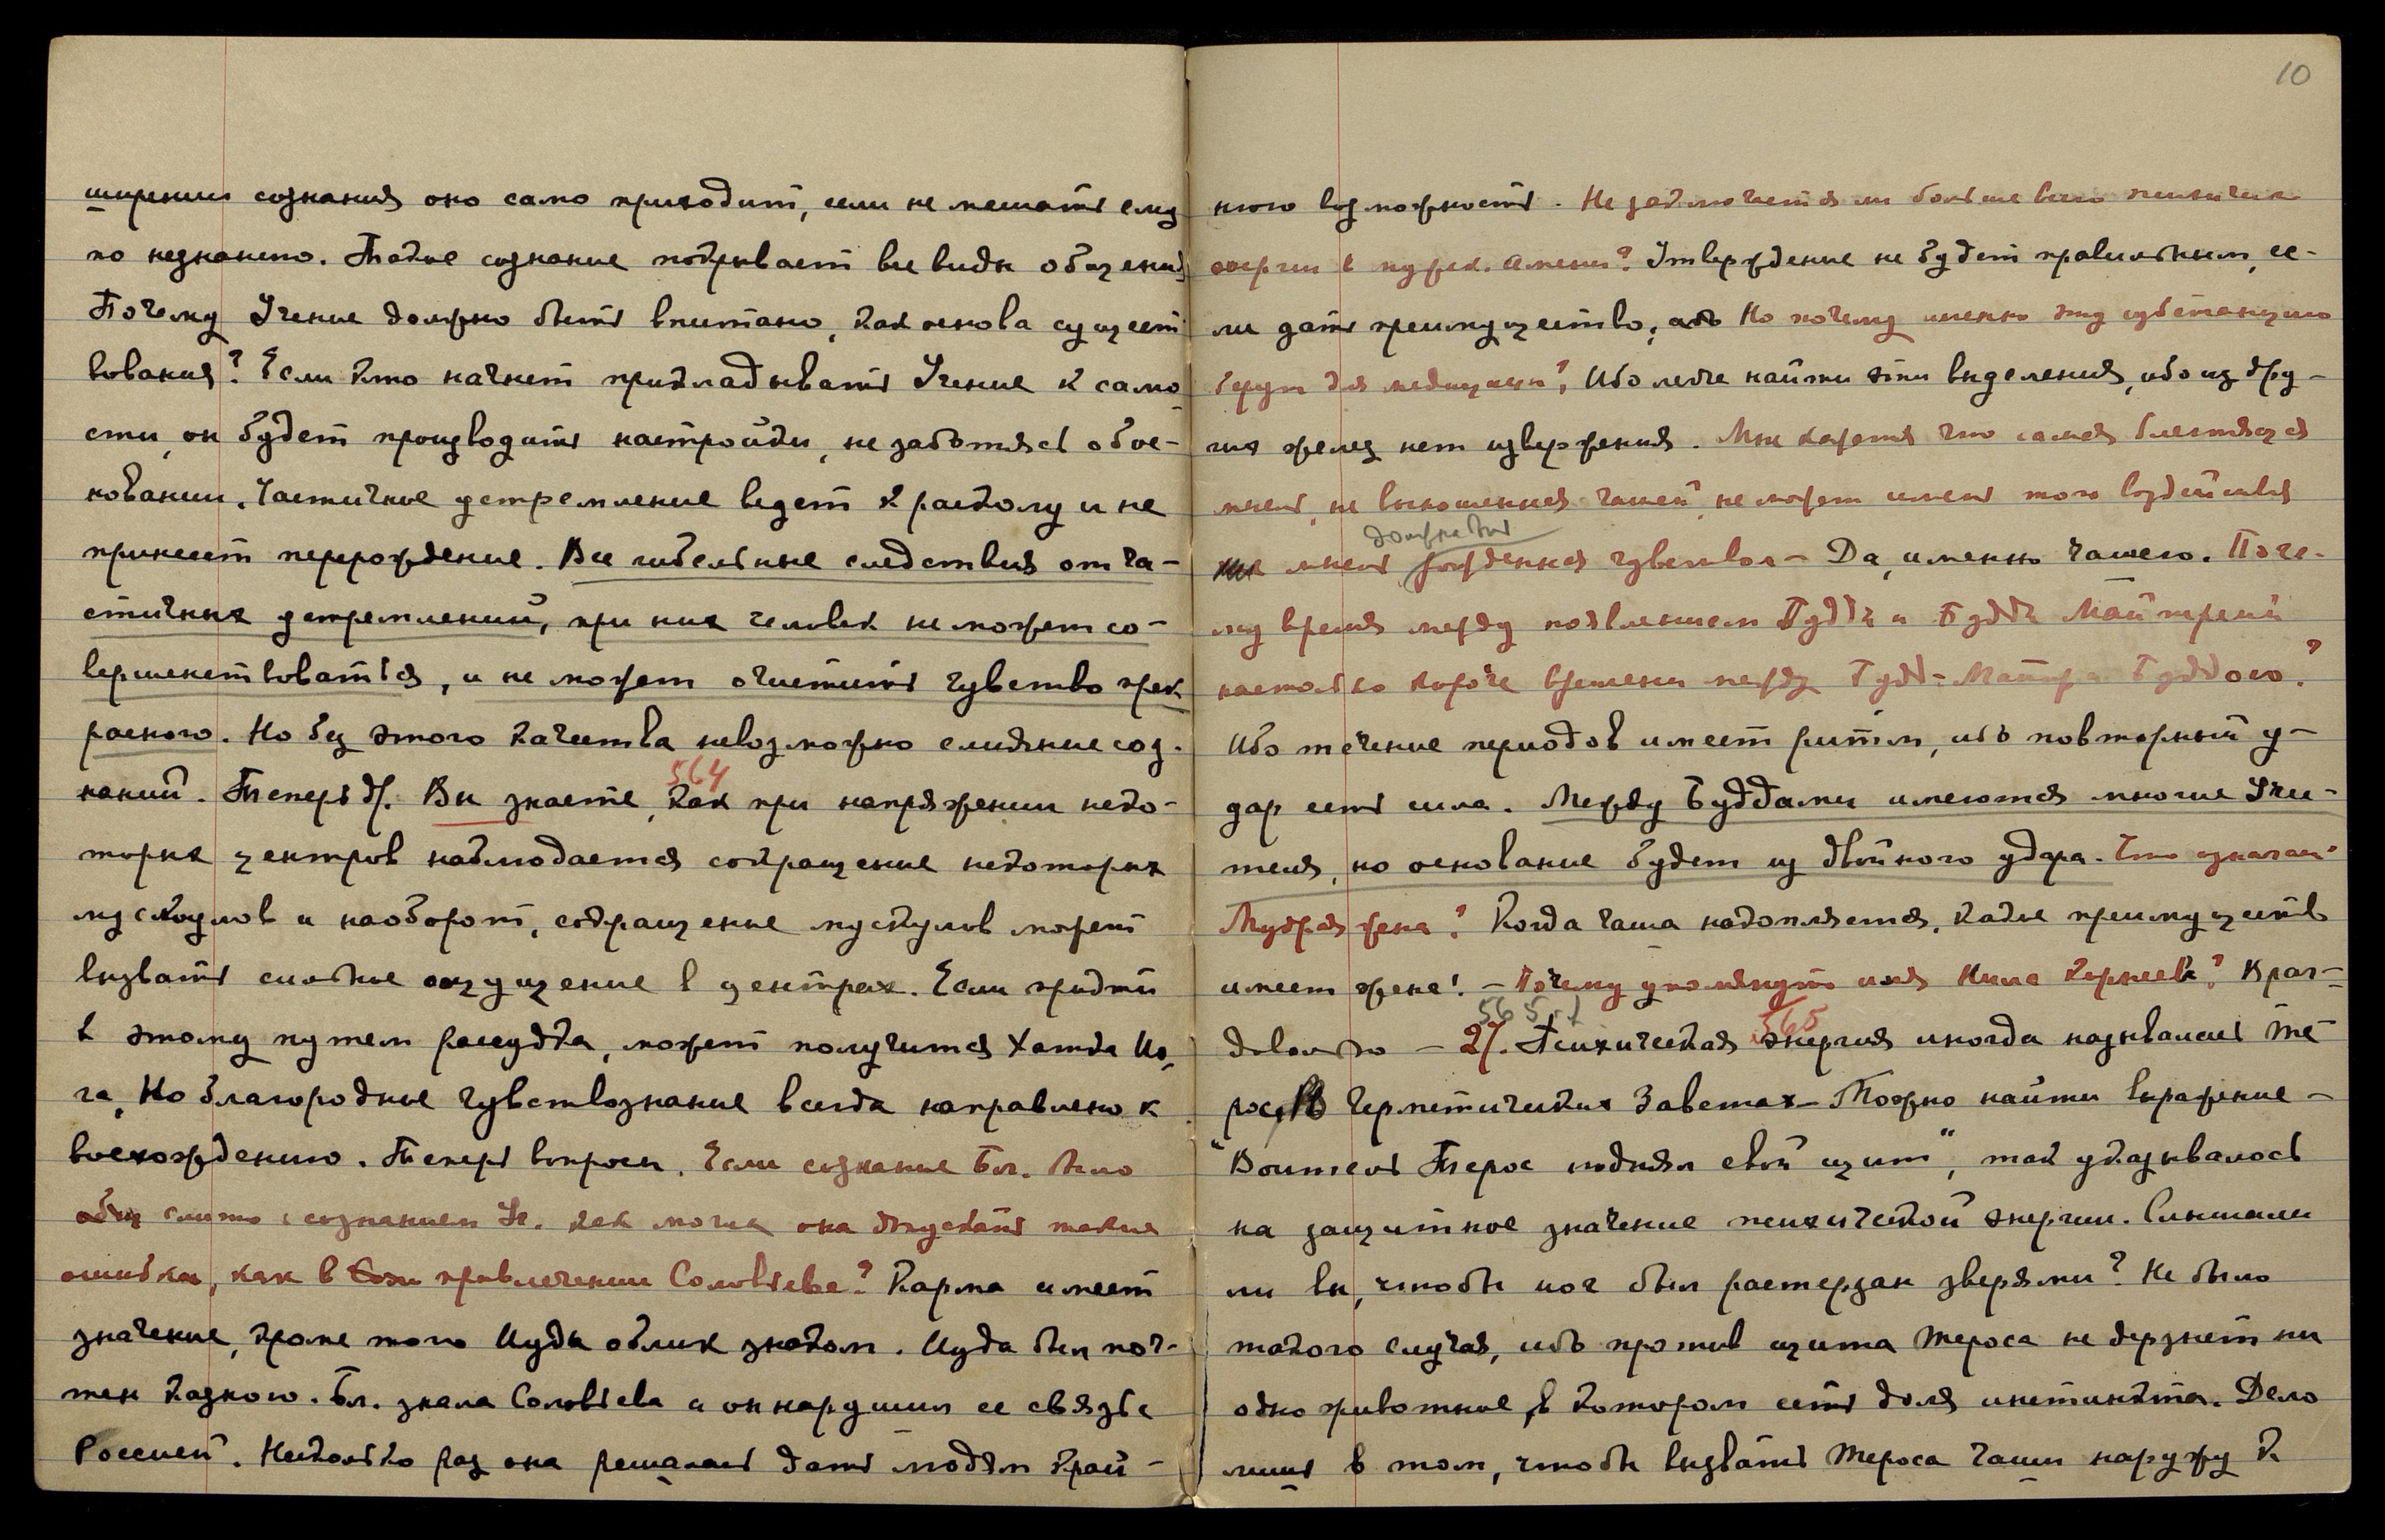 ширении сознания оно само приходит, если не мешать ему
по незнанию. Такое сознание покрывает все виды общения
Почему Учение должно быть впитано, как основа сущест
вования? Если кто начнет прикладывать Учение к само
сти, он будет производить настройки, не заботясь об ос-
новании. Частичное устремление ведет к расколу и не
принесет перерождение. Все гибельные следствия от ча-
стичных устремлений, при них человек не может со-
вершенствоваться, и не может очистить чувство прек
расного. Но без этого качества невозможно слияние соз-
наний. Теперь др. Вы знаете, как при напряжении неко-
564
торых центров наблюдается сокращение некоторых
мускулов и наоборот, сокращение мускулов может
вызвать слабое ощущение в центрах. Если придти
к этому путем рассудка, может получиться Хатха Ио
га, Но благородное чувствознание всегда направлено к
восхождению. Теперь вопросы. Если сознание Бл. было
слито с сознанием Уч. как могла она допускать такие
ошибки, как в привлечении Соловьева? Карма имеет
значение, кроме того Иуды облик знаком. Иуда был поч-
тен казною. Бл. знала Соловьева и он нарушил ее связь с
Россией. Несколько раз она решалась дать людям край-
10
нюю возможность. Не заключается ли больше всего психическ
энергии в мужск. семени? Утверждение не будет правильным, ес-
ли дать преимущество, Но почему именно эту субстанцию
берут для медицины? Ибо легче найти эти выделения, ибо из дру-
гих желез нет извержения. Мне кажется что самая блестящая
мысль, не выношенная чашей, не может иметь того воздействия
мысль рожденная чувством – Да, именно чашею. Поче-
му время между появлением Будды и Будды Майтрейи
настолько короче времени между Будд-
Ибо течение периодов имеет ритм, ибо повторный у-
дар есть сила. Между Буддами имеются многие Учи-
теля, но основание будет из двойного удара. Что означает
Мудрая жена? Когда чаша накопляется, какое преимущество
имеет жена! – Почему упомянуто имя Нила Корнеева? Враг-
565
565
довольно – 27. Психическая энергия иногда называлась Те-
рос, В Герметических Заветах – Можно найти выражение –
"Воитель Терос поднял свой щит", так указывалось
на защитное значение психической энергии. Слышали
ли вы, чтобы йог был растерзан зверями? Не было
такого случая, ибо против щита Тероса не дерзнет ни
одно животное, в котором есть доля инстинкта. Дело
лишь в том, чтобы вызвать Тероса чаши наружу к